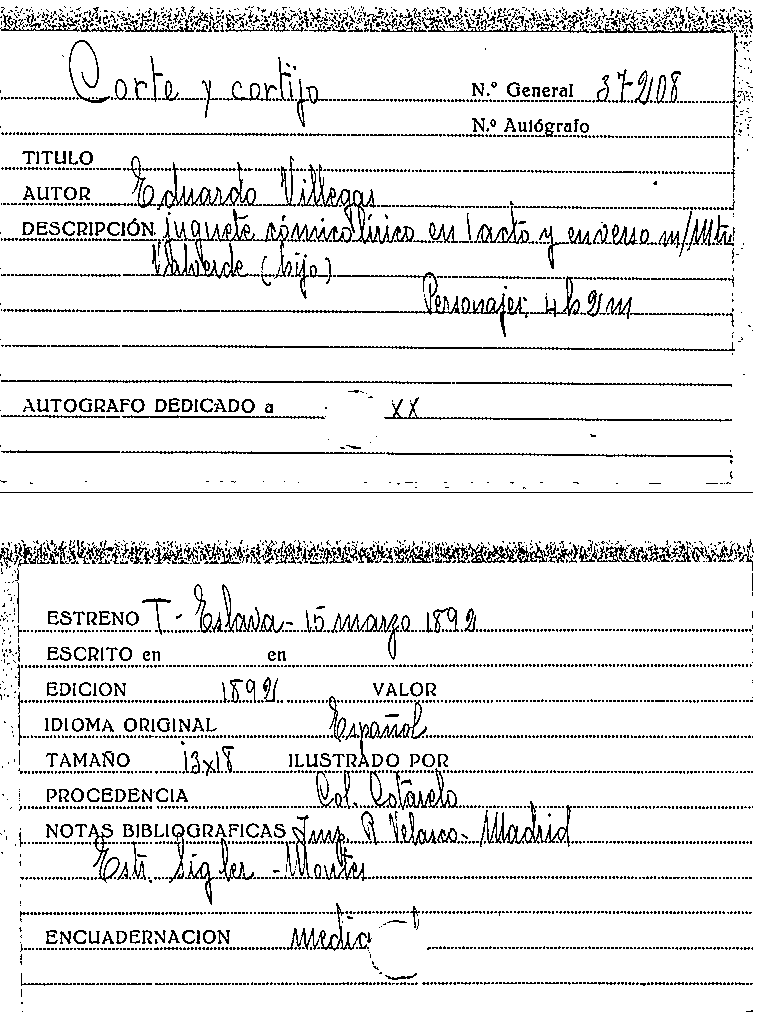 Corte y cortijo N.º General 37208
N.º Autógrafo
TITULO
AUTOR Eduardo Villegas
DESCRIPCIÓN juguete cómico lírico en 1 acto y en verso m/Mtro
Valverde (hijo)
Personajes, 4 h 2 m
AUTOGRAFO DEDICADO a XX
ESTRENO T - Eslava - 15 marzo 1892
ESCRITO en en
EDICION 1892 VALOR
IDIOMA ORIGINAL Español
TAMAÑO 13x18 ILUSTRADO POR
PROCEDENCIA Col. Cotarelo
NOTAS BIBLIOGRAFICAS Imp. R Velasco - Madrid
Estr. Sigler - Montes
ENCUADERNACION media